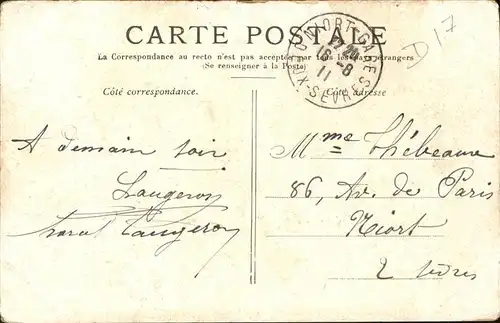 CARTE POSTALE
D17
La Correspondance au recto n'est pas acceptée par tous les pays étrangers
(Se renseigner à la Poste)
NIORT-GARE
16-8
11
Côté correspondance.
Côté adresse
A demain soir
Laugeron
Mme Thébeaux
86, Av. de Paris
Niort
2 Sèvres